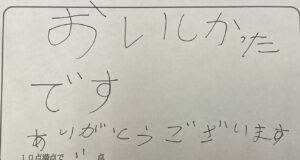 おいしかった
です
ありがとうございます
10点満点で 点